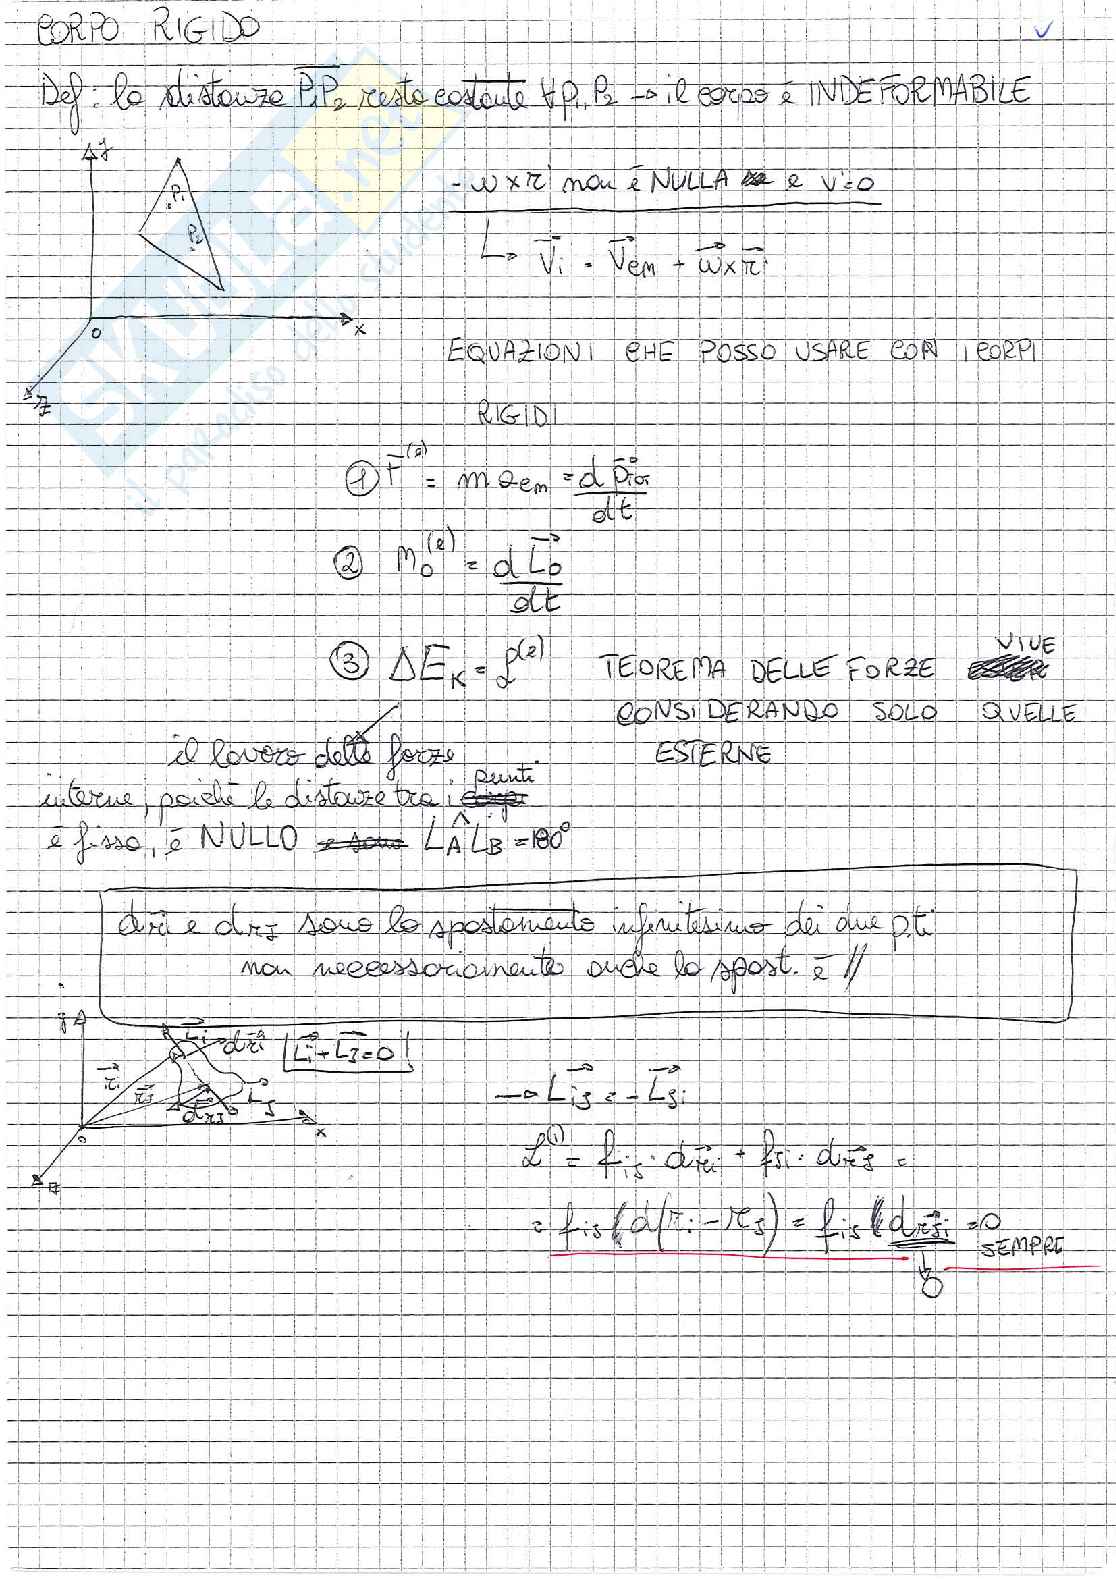 CORPO RIGIDO
Def: la distanza P₁P₂ resta costante ∀ p₁, P₂ → il corpo è INDEFORMABILE
y
P₁
P₂
O
x
z
- ω × r' non è NULLA e v'=0
↳ Vᵢ = V⃗cm + ω⃗ × r⃗'
EQUAZIONI CHE POSSO USARE CON I CORPI
RIGIDI
① F⃗⁽ᵉ⁾ = m a cm = d p⃗ / dt
② M₀⁽ᵉ⁾ = d L⃗₀ / dt
③ ΔE_K = L⁽ᵉ⁾ TEOREMA DELLE FORZE VIVE
CONSIDERANDO SOLO QUELLE
ESTERNE
il lavoro delle forze
interne, poichè le distanze tra i punti
è fissa, è NULLO = 180°
d r⃗i e d rJ sono lo spostamento infinitesimo dei due p.ti
non neccessariamente anche lo spost. è //
y
x
z
O
r⃗i
r⃗J
d r⃗i
d rJ
L⃗i
L⃗J
L⃗i + L⃗J = 0
→ L⃗iJ = - L⃗Ji
L⁽ⁱ⁾ = fiJ · d r⃗i + fJi · d r⃗J =
= fiJ d(ri - rJ) = fiJ d r⃗Ji = 0
SEMPRE
0
SKUOLA.net
il paradiso dello studente